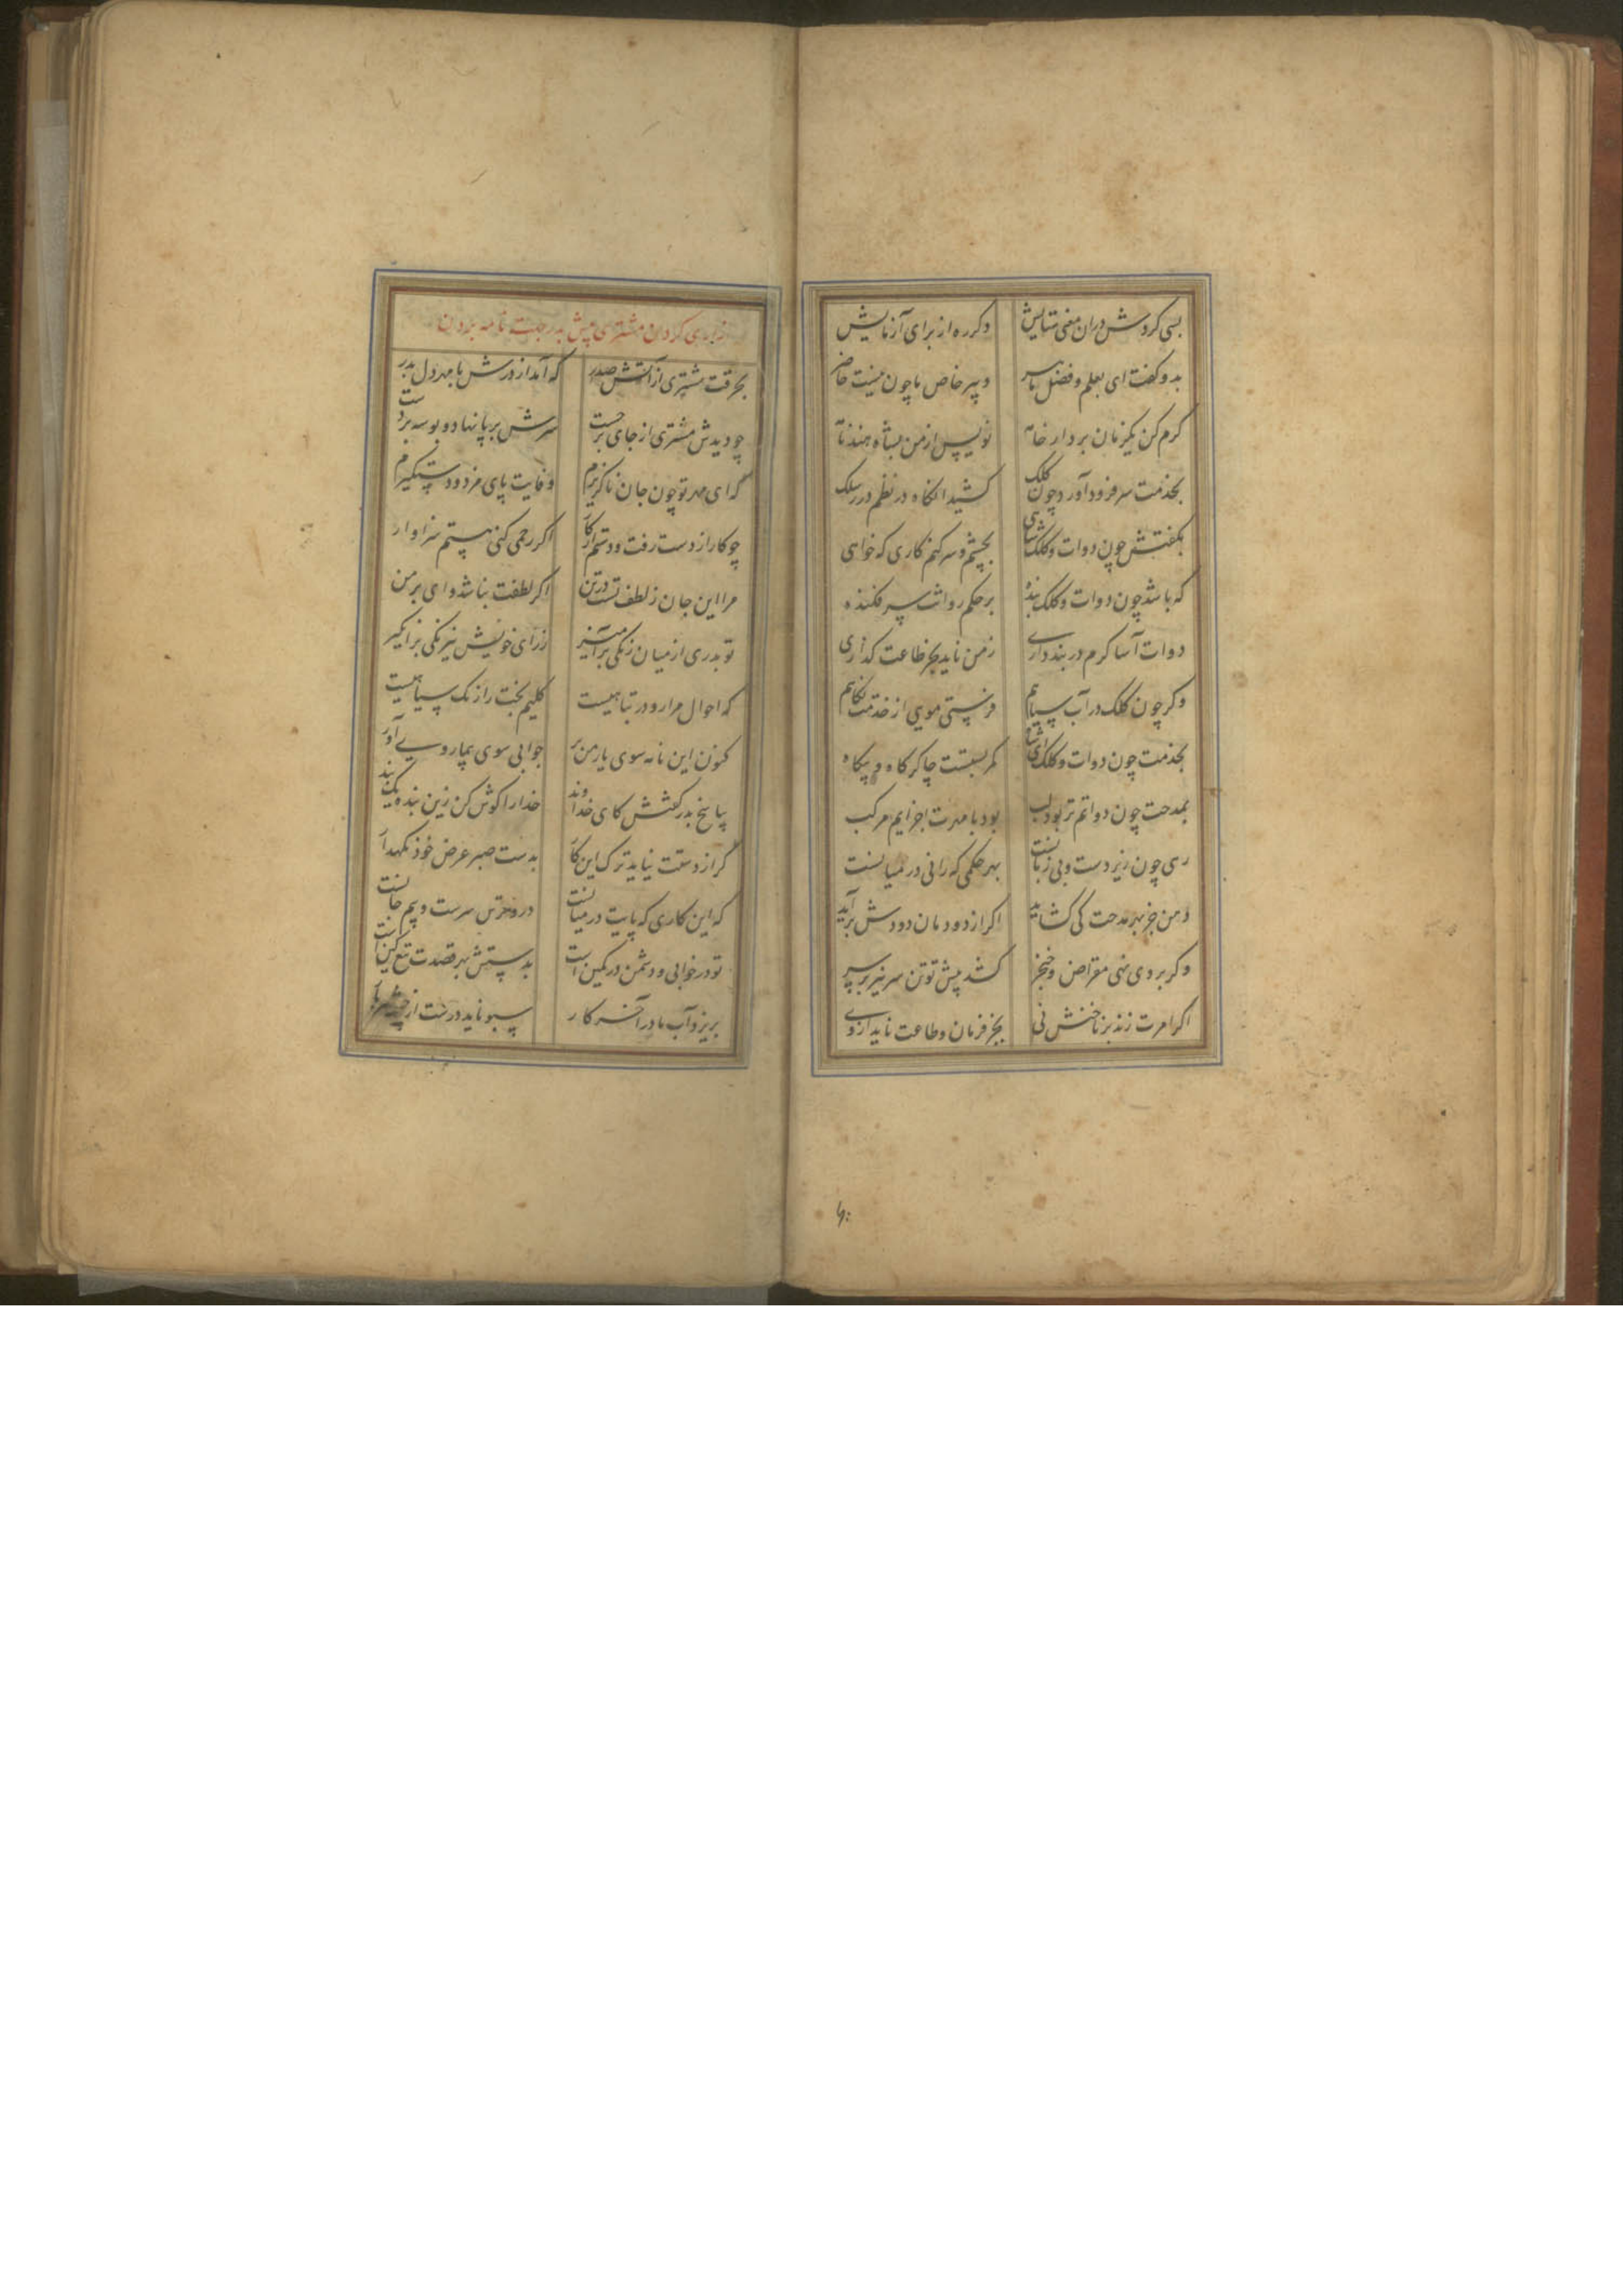 بسی کردش دران معنی ستایش دکرره از برای آزمایش
بدو کفت ای بعلم و فضل ماهر دبیر خاص ما چون نیست حاضر
کرم کن یکزمان بردار خامه نویس از من بشاه هند نامه
بخدمت سر فرود آورد چون کلک کشید انکاه در نظم در سلک
بکفتش چون دوات و کلک شاهی بچشم و سر کنم کاری که خواهی
که باشد چون دوات و کلک بنده بر حکم روانت سر فکنده
دوات آسا کرم در بند داری زمن ناید بجز طاعت کذاری
وکر چون کلک در آب سیاهم فرستی مویی از خدمت نکاهم
بخدمت چون دوات و کلک کمر بستست چاکر کاه و بیکاه
بمدحت چون دواتم تر بود لب بود با مهرت اجزایم مرکب
رهی چون زیر دست و بی زبانست بهر حکمی که رانی در میانست
دهن جز بهر مدحت کی کشاید اکر از دودمان دودش برآید
وکر بر وی نهی مقراض و خنجر کشد پیش تو تن سر نیز بر سر
اکر امرت زند بر ناخنش نی بجز فرمان و طاعت ناید از وی
زاری کردن مشتری پیش بدر جهت نامه بردن
بحرقت مشتری از آتش صدر که آمد از درش با مهر دل بدر
چو دیدش مشتری از جای برجست سرش بر پا نهاد و بوسه بر دست
که ای مهر تو چون جان ناکزیرم وفایت پای مزد و دستکیرم
چو کار از دست رفت و دستم از کار اکر رحمی کنی هستم سزاوار
مرا این جان ز لطف تست در تن اکر لطفت نباشد وای بر من
تو بدری از میان زنکی برآمیز ز رای خویش نیرنکی برانکیز
که احوال مرا رو در تباهیست کلیم بخت را رنک سیاهیست
کنون این نامه سوی یار من بر جوابی سوی بیمار وی آور
بپاسخ بدر کفتش کای خداوند خدارا کوش کن زین بنده یک پند
کر از دستت نیاید ترک این کار بدست صبر عرض خود نکهدار
که این کاری که پایت در میانست درو ترس سرست و بیم جانست
تو در خوابی و دشمن در کمین است بدستش بهر قصدت تیغ کین است
بریزد آب ما در آخر کار سبو ناید درست از